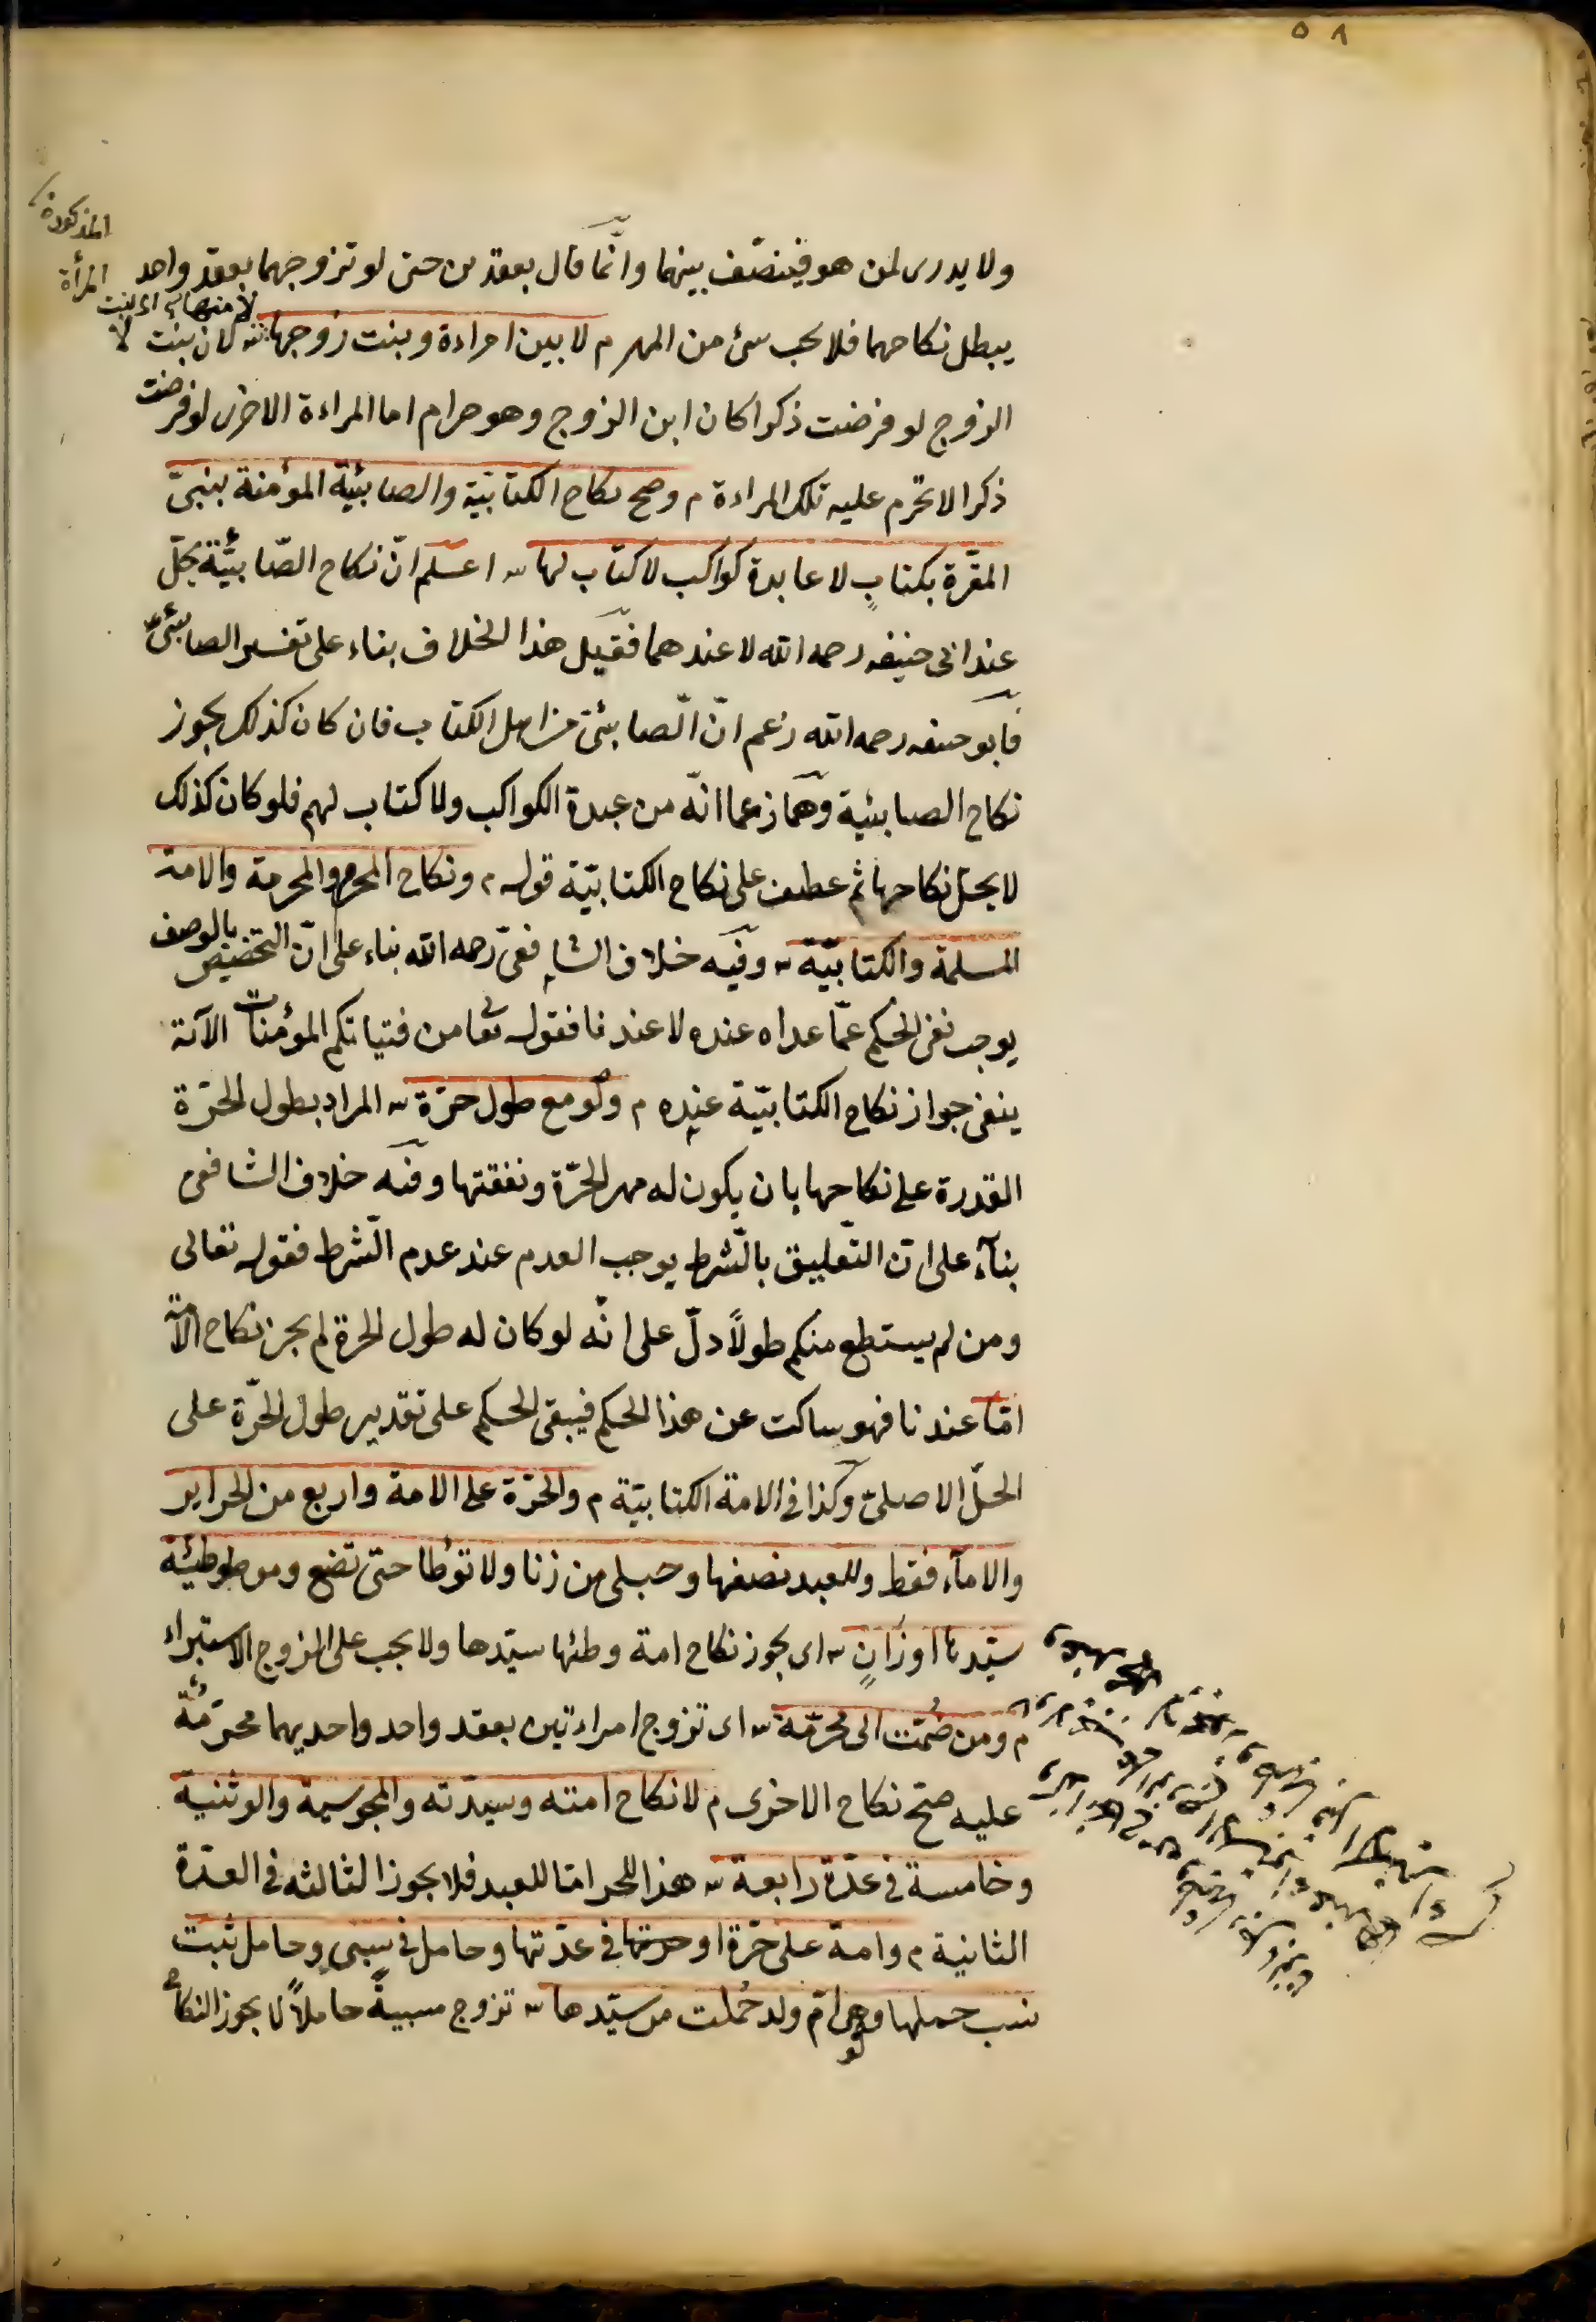 ٥٨
ولا يدرى لمن هو فينصّف بينهما وانّما قال بعقدين حتى لو تزوجهما بعقد واحد
يبطل نكاحهما فلا يجب شئ من المهر م لا بين امراءة وبنت زوجها لا منها ش لان بنت
الزوج لو فرضت ذكرا كان ابن الزوج وهو حرام اما المراءة الاخرى لو فرضت
ذكرا لا تحرم عليه تلك المراءة م وصح نكاح الكتابيّة والصابئيّة المؤمنة بنبىّ
المقرّة بكتابٍ لا عابدة كواكب لا كتاب لها ش اعلم انّ نكاح الصّابئيّة يحلّ
عند ابى حنيفه رحمه الله لا عندهما فقيل هذا الخلاف بناء على تفسير الصابئىّ
فابو حنيفه رحمه الله زعم انّ الصّابئىّ من اهل الكتاب فان كان كذلك يجوز
نكاح الصابئية وهما زعما انّه من عبدة الكواكب ولا كتاب لهم فلو كان كذلك
لا يحلّ نكاحها ثم عطف على نكاح الكتابيّة قوله م ونكاح المحرم والمحرمة والامة
المسلمة والكتابيّة ش وفيه خلاف الشافعىّ رحمه الله بناء على انّ التخصيص بالوصف
يوجب نفى الحكم عمّا عداه عنده لا عندنا فقوله تعا من فتياتكم المؤمنات الآية
ينفى جواز نكاح الكتابيّة عنده م ولو مع طول حرّة ش المراد بطول الحرّة
القدرة على نكاحها بان يكون له مهر الحرّة ونفقتها وفيه خلاف الشافعى
بنآء على انّ التّعليق بالشّرط يوجب العدم عند عدم الشّرط فقوله تعالى
ومن لم يستطع منكم طولاً دلّ على انّه لو كان له طول الحرة لم يجز نكاح الامة
امّا عندنا فهو ساكت عن هذا الحكم فيبقى الحكم على تقدير طول الحرّة على
الحلّ الاصلىّ وكذا فى الامة الكتابيّة م والحرّة على الامة واربع من الحراير
والامآء فقط وللعبد نصفها وحبلى من زنا ولا توٴطا حتى تضع وموطوطئية
سيّدها اوزانٍ ش اى يجوز نكاح امة وطئها سيّدها ولا يجب على الزوج الاستبراء
م ومن ضُمّت الى محرّمة ش اى تزوج امراءتين بعقد واحد واحديهما محرّمة
عليه صحّ نكاح الاخرى م لا نكاح امته وسيدته والمجوسية والوثنية
وخامسة فى عدّة رابعة ش هذا للحر امّا للعبد فلا يجوز الثالثه فى العدّة
الثانية م وامة على حرّة او حرتها فى عدّتها وحامل فى سبىٍ وحامل ثبت
نسب حملها ولو هى امّ ولد حُملت من سيّدها ش تزوج مسبيةً حاملاً لا يجوز النكاح
المذكورة
المرأة
اى لبنت
لا